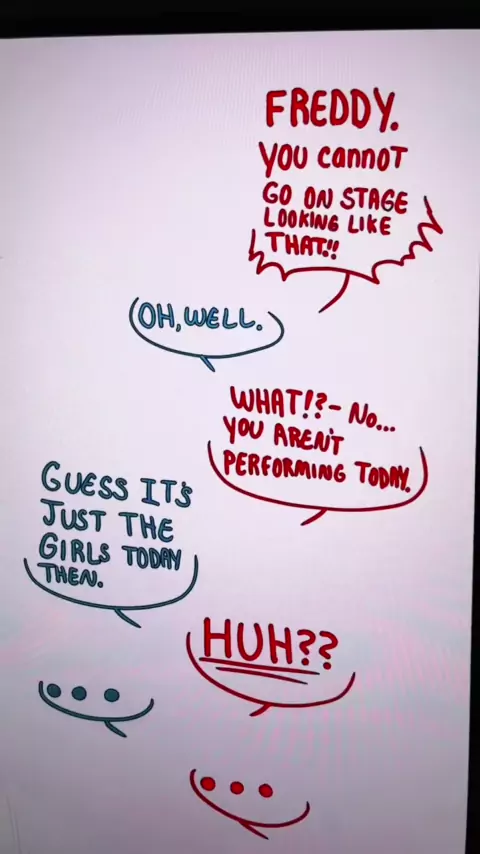 FREDDY.
YOU cannot
GO ON STAGE
LOOKING LIKE
THAT!!
OH, WELL.
WHAT!?- No...
YOU AREN'T
PERFORMING TODAY.
GUESS IT'S
JUST THE
GIRLS TODAY
THEN.
HUH??
...
...